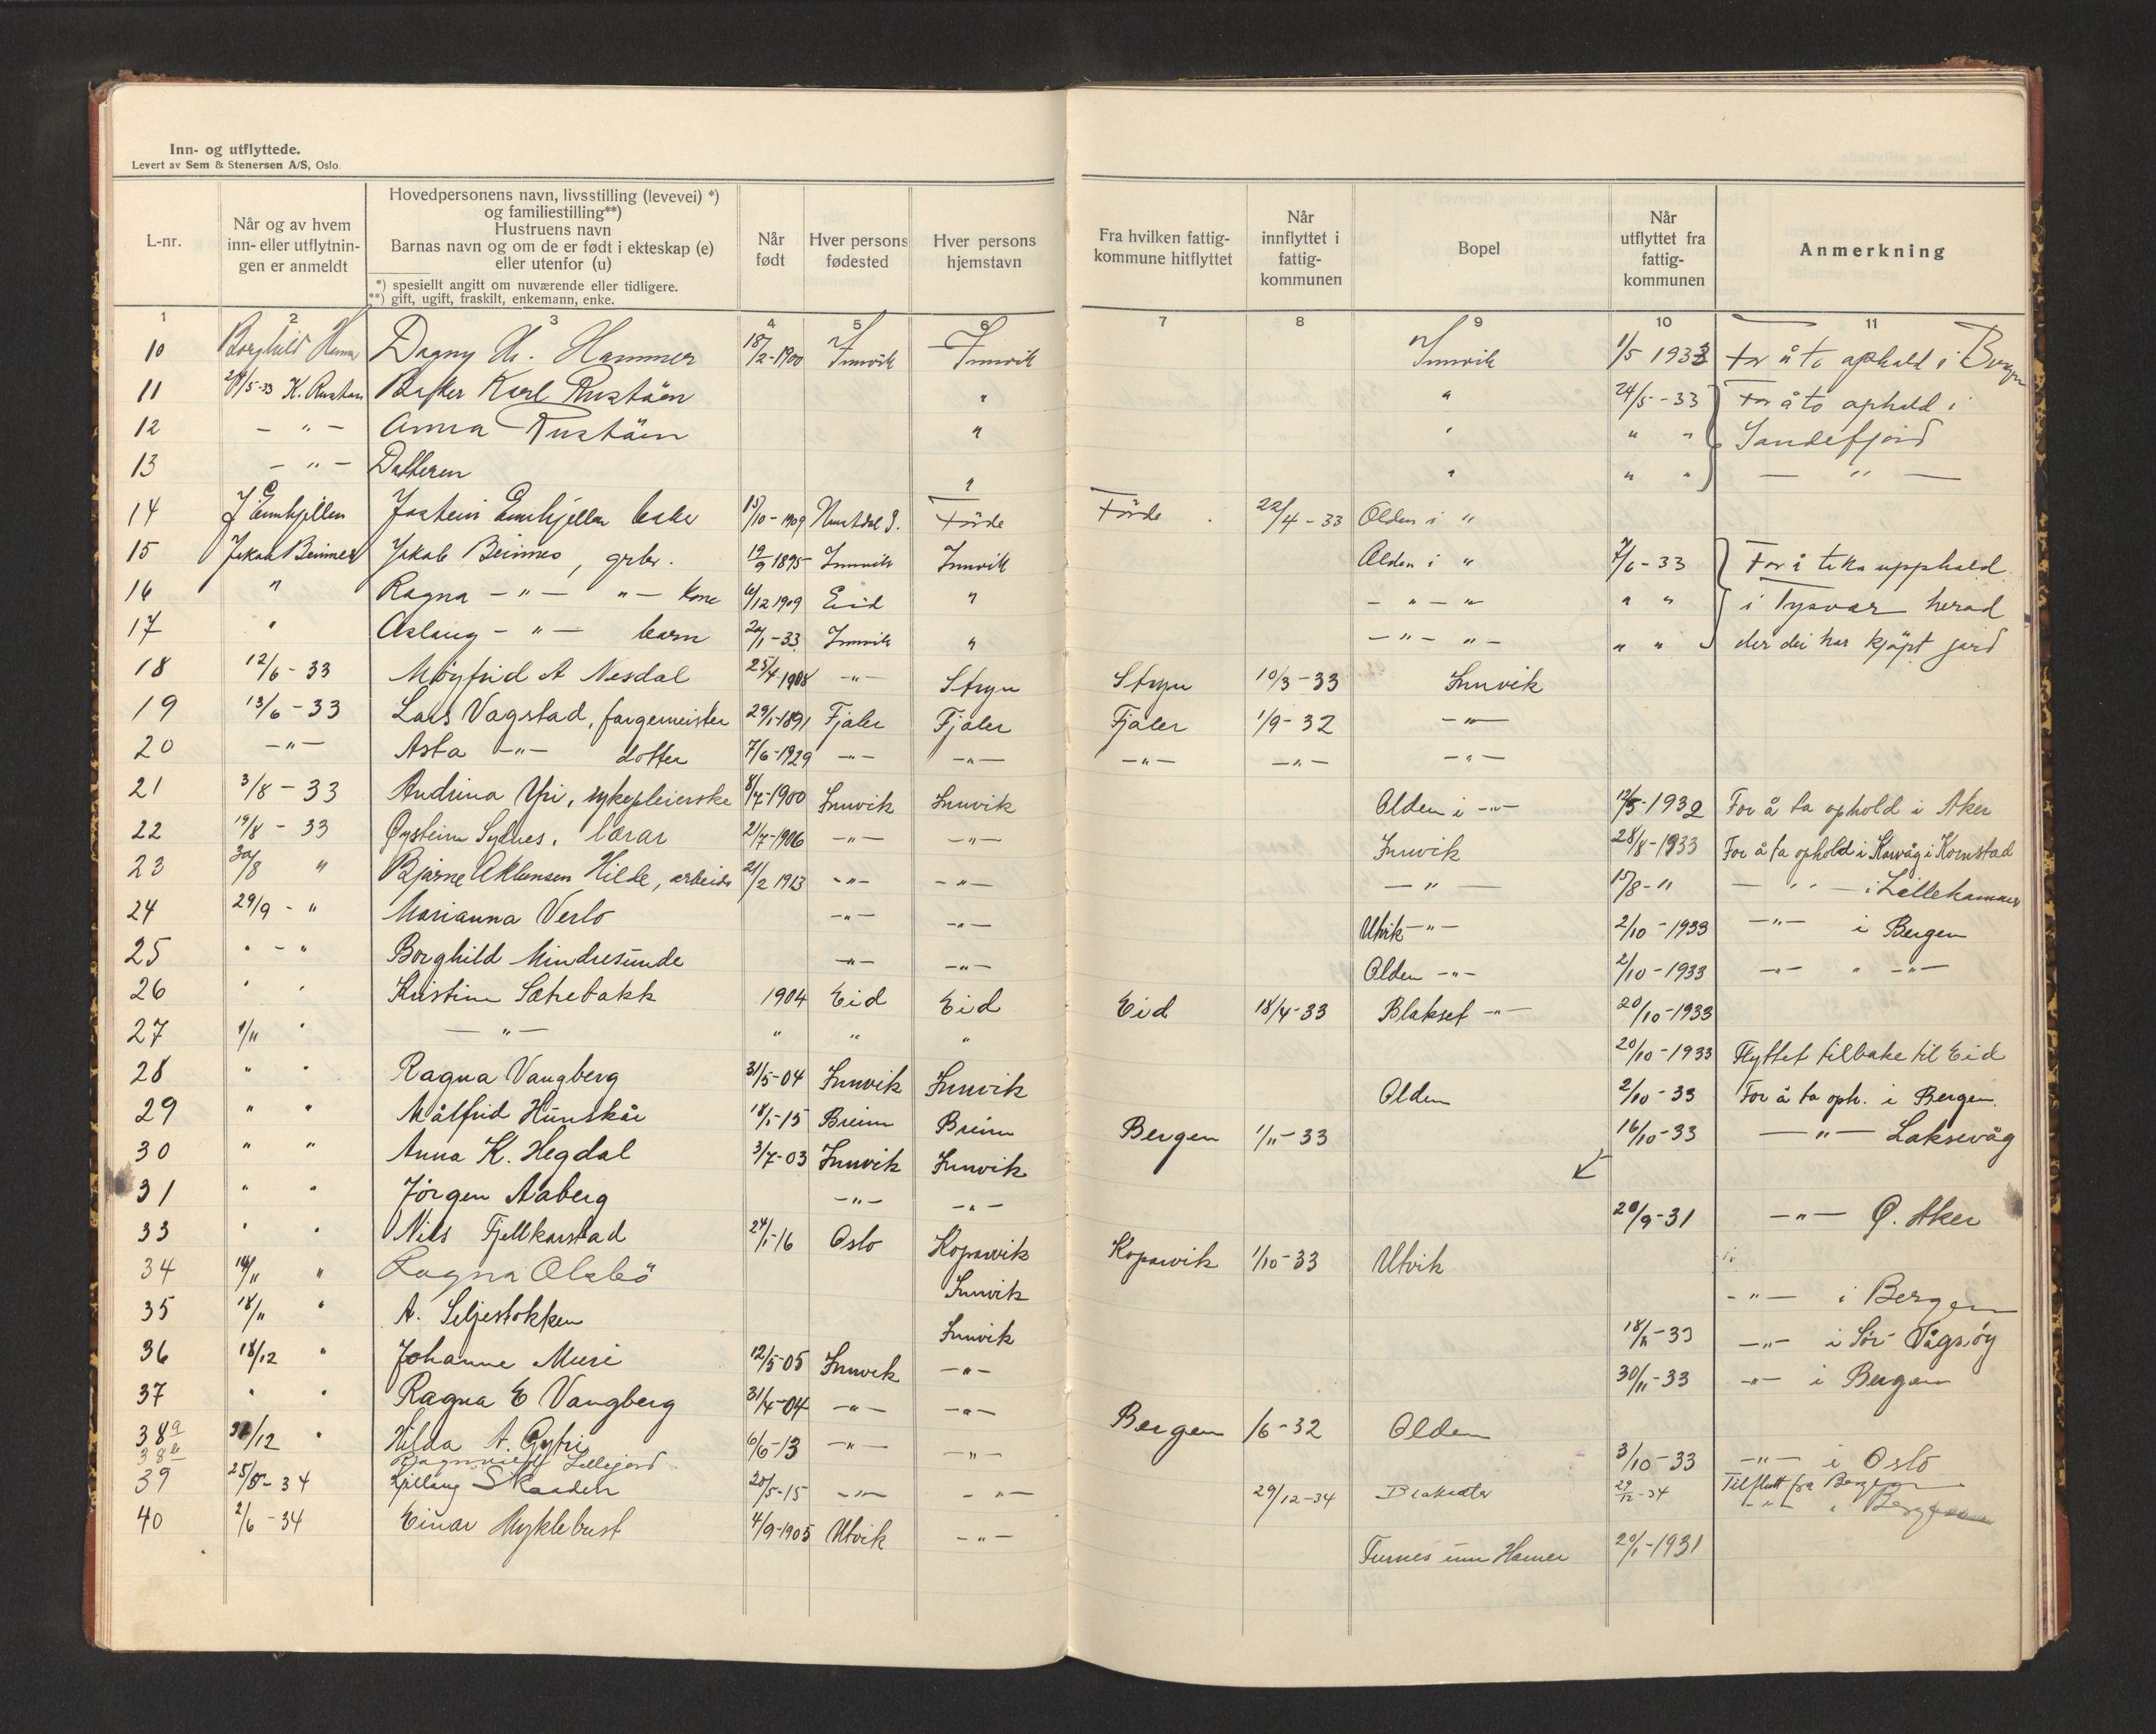 Inn- og utflyttede.
Levert av Sem & Stenersen A/S, Oslo.
L-nr.
Når og av hvem
inn- eller utflytnin-
gen er anmeldt
Hovedpersonens navn, livsstilling (levevei) *)
og familiestilling**)
Hustruens navn
Barnas navn og om de er født i ekteskap (e)
eller utenfor (u)
*) spesiellt angitt om nuværende eller tidligere.
**) gift, ugift, fraskilt, enkemann, enke.
Når
født
Hver persons
fødested
Hver persons
hjemstavn
Fra hvilken fattig-
kommune hitflyttet
Når
innflyttet i
fattig-
kommunen
Bopel
Når
utflyttet fra
fattig-
kommunen
Anmerkning
1 2 3 4 5 6 7 8 9 10 11
10 Borghild Dagny Hammer 18/2-1900 Innvik Innvik Innvik 1/5 1933 For å ta ophold i Bergen
11 24/5-33 K. Karl Innvik 24/5-33 For å ta ophold i
12 -"- Anna " " " Sandefjord
13 -"- Datteren " " " -"-
14 J Eimhjellen Jostein Eimhjellen 15/10-1909 Förde Förde 22/4-33 Olden i "
15 Jakob Beinnes Jakob Beinnes, grbr. 19/9 1895 Innvik Innvik Olden i " 7/6-33 For å taka upphald
16 " Ragna -"- "- kone 6/12 1909 Eid " -"-" " " i Tysvær herad
17 " Aslaug -"- barn 20/1-33 Innvik " -"- "- " " der dei har kjøpt jard
18 12/6-33 Møyfrid A Nesdal 25/4 1908 -"- Stryn Stryn 10/3-33 Innvik
19 13/6-33 Lars Vagstad, fargemeister 29/1-1891 Fjaler Fjaler Fjaler 1/9-32 -"-
20 -"- Asta -"- dotter 7/6-1929 -"- -"- -"- -"- -"-
21 3/8-33 Andrina Yri, sykepleierske 8/7-1900 Innvik Innvik Olden i -"- 12/5-1932 For å ta ophold i Aker
22 19/8-33 Øystein Sydnes, lærar 21/7-1906 -"- -"- Innvik 28/8-1933 For å ta ophold i Karvåg i Kornstad
23 30/8 " Bjarne Hilde, arbeider 21/2 1913 -"- -"- -"- 15/8-" -"- i Lillehammer
24 29/9-" Marianna Verlo -"- -"- Utvik -"- 2/10-1933 -"- i Bergen
25 " - " Borghild Mindresunde -"- -"- Olden -"- 2/10-1933 -"- " -"-
26 " " Kristine Sætrebakk 1904 Eid Eid Eid 18/4-33 Blakset -"- 20/10-1933
27 1/11 " -"- " " " 20/10-1933 Flyttet tilbake til Eid
28 " " Ragna Vangberg 31/5-04 Innvik Innvik Olden 2/10-33 For å ta oph. i Bergen.
29 " " Målfrid Hunskår 18/1-15 Breim Breim Bergen 1/11-33 16/10-33 -"- Laksevåg
30 " " Anna K. Hegdal 3/7-03 Innvik Innvik
31 " " Jörgen Aaberg -"- -"- 20/9-31 -"- Ø. Aker
33 " " Nils Fjellkarstad 24/1-16 Oslo Kopervik Kopervik 1/10-33 Utvik
34 14/11 " Ragna Olsbö Innvik -"- i Bergen
35 18/11 " A. Seljestokken Innvik 18/11-33 -"- i Sör-Vågsöy
36 18/12 " Johanne Muri 12/5-05 Innvik -"- 30/11-33 -"- i Bergen
37 " " Ragna E Vangberg 31/4-04 -"- -"- Bergen /6-32 Olden
38a /12 " Hilda A. Gytri 6/6-13 -"- -"- 3/10-33 -"- i Oslo
38b Lillejord 29/12-34 29/12-34 Tilflutt fra Bergen
39 25/5-34 Skaaden 20/5-15 -"- -"- -"- i Bergen
40 2/6-34 Einar Myklebust 4/9-1905 Utvik -"- Furnes um Hamer 20/1-1931